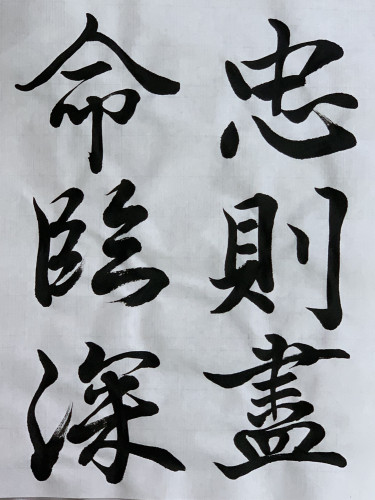 忠則盡
命臨深